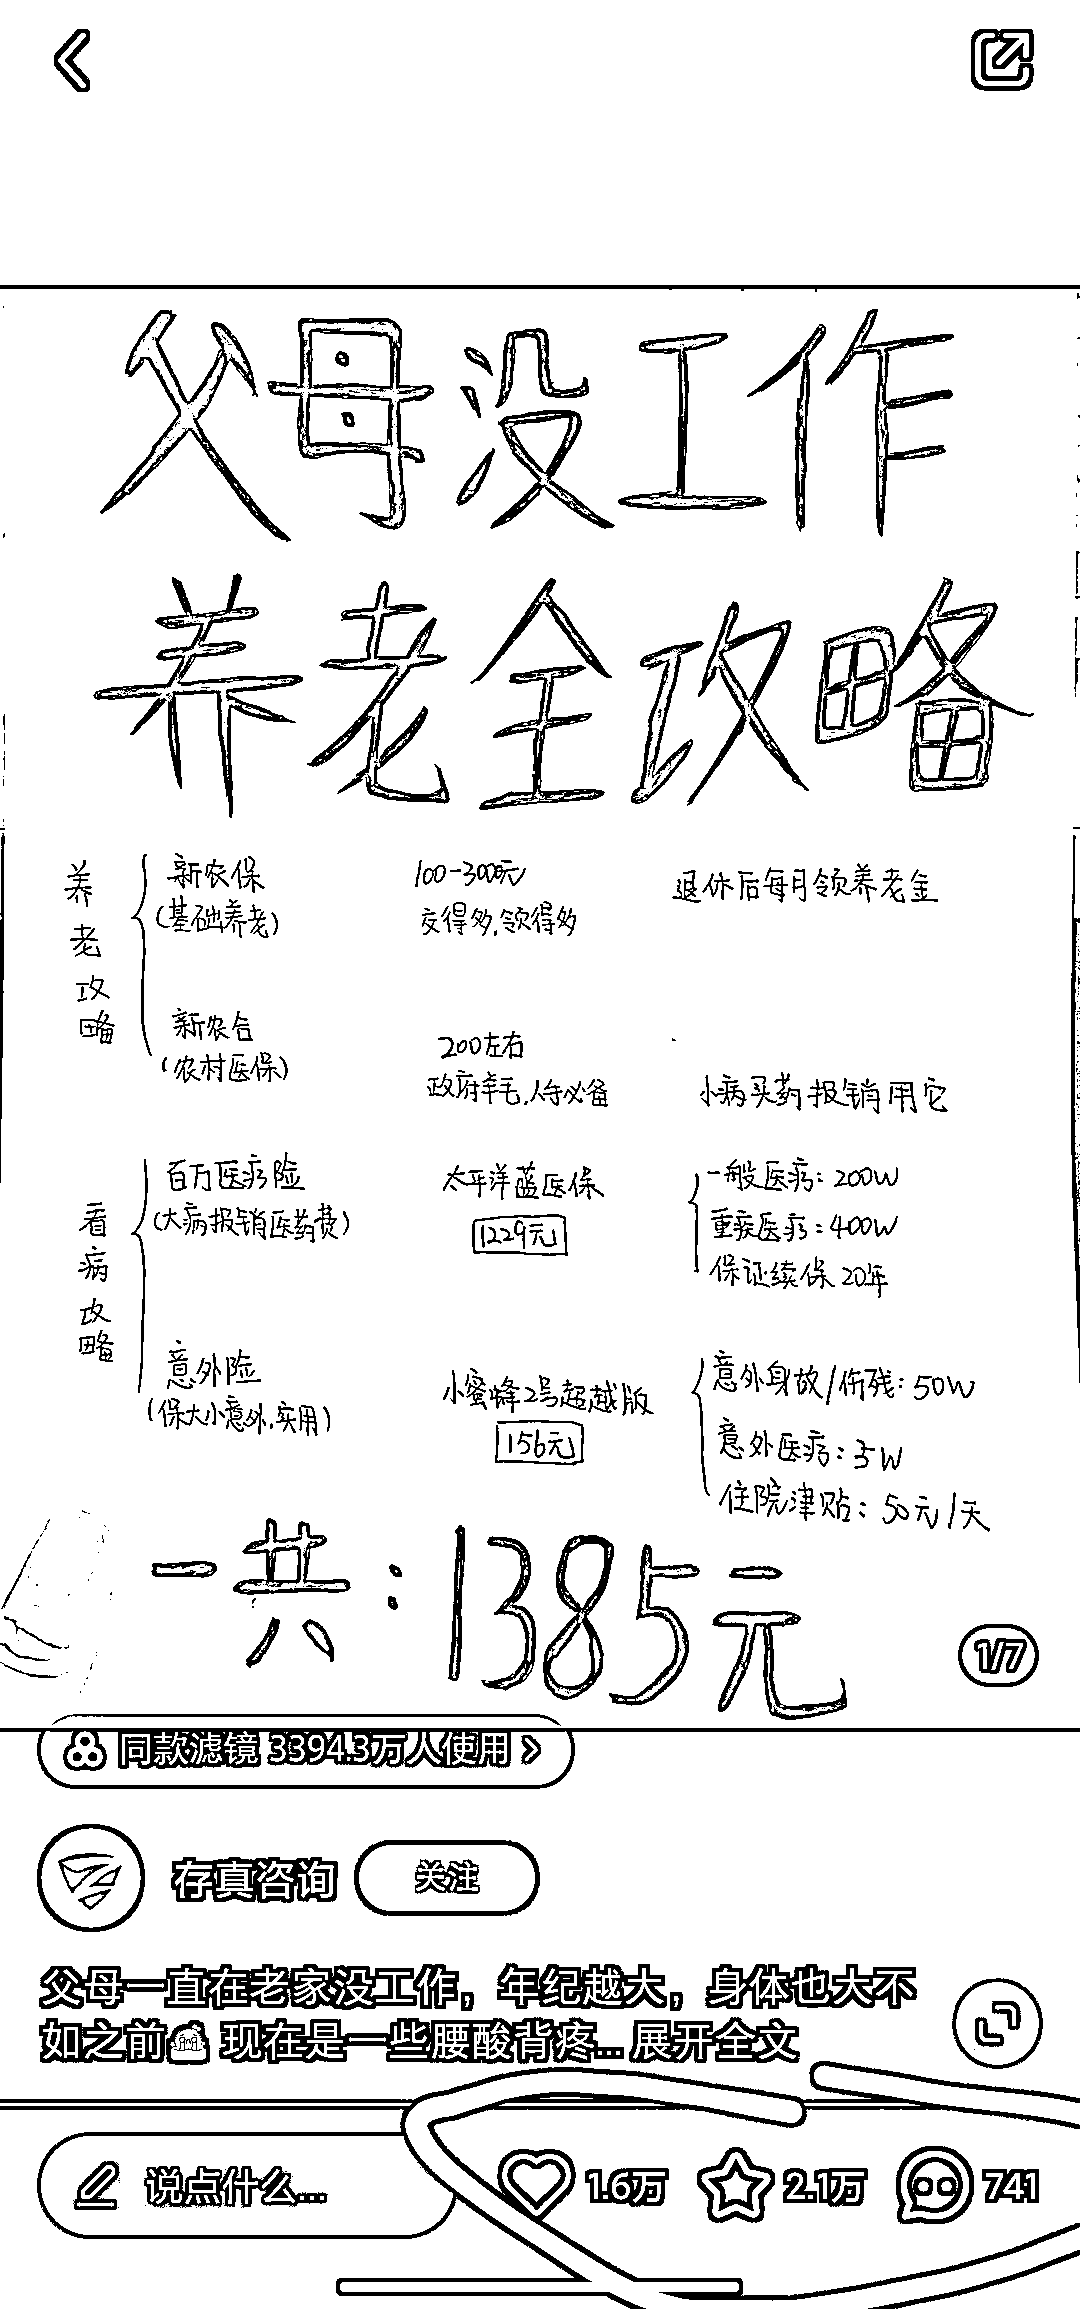 父母没工作
养老全攻略
养老攻略
新农保
(基础养老)
100-3000元
交得多,领得多
退休后每月领养老金
新农合
(农村医保)
200左右
政府羊毛,人手必备
小病买药报销用它
看病攻略
百万医疗险
(大病报销医药费)
太平洋蓝医保
1229元
一般医疗:200W
重疾医疗:400W
保证续保20年
意外险
(保大小意外,实用)
小蜜蜂2号超越版
156元
意外身故/伤残:50W
意外医疗:5W
住院津贴:50元/天
一共:1385元
1/7
同款滤镜 3394.3万人使用
存真咨询
关注
父母一直在老家没工作，年纪越大，身体也大不
如之前 现在是一些腰酸背疼... 展开全文
说点什么...
1.6万
2.1万
741